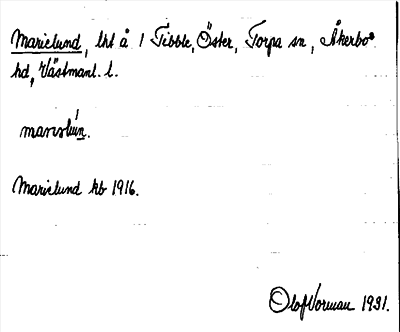 Marielund, lht å 1 Tibble, Öster, Torpa sn, Åkerbo
hd, Västmanl. l.
Marielund kb 1916.
Olof Vorman 1931.